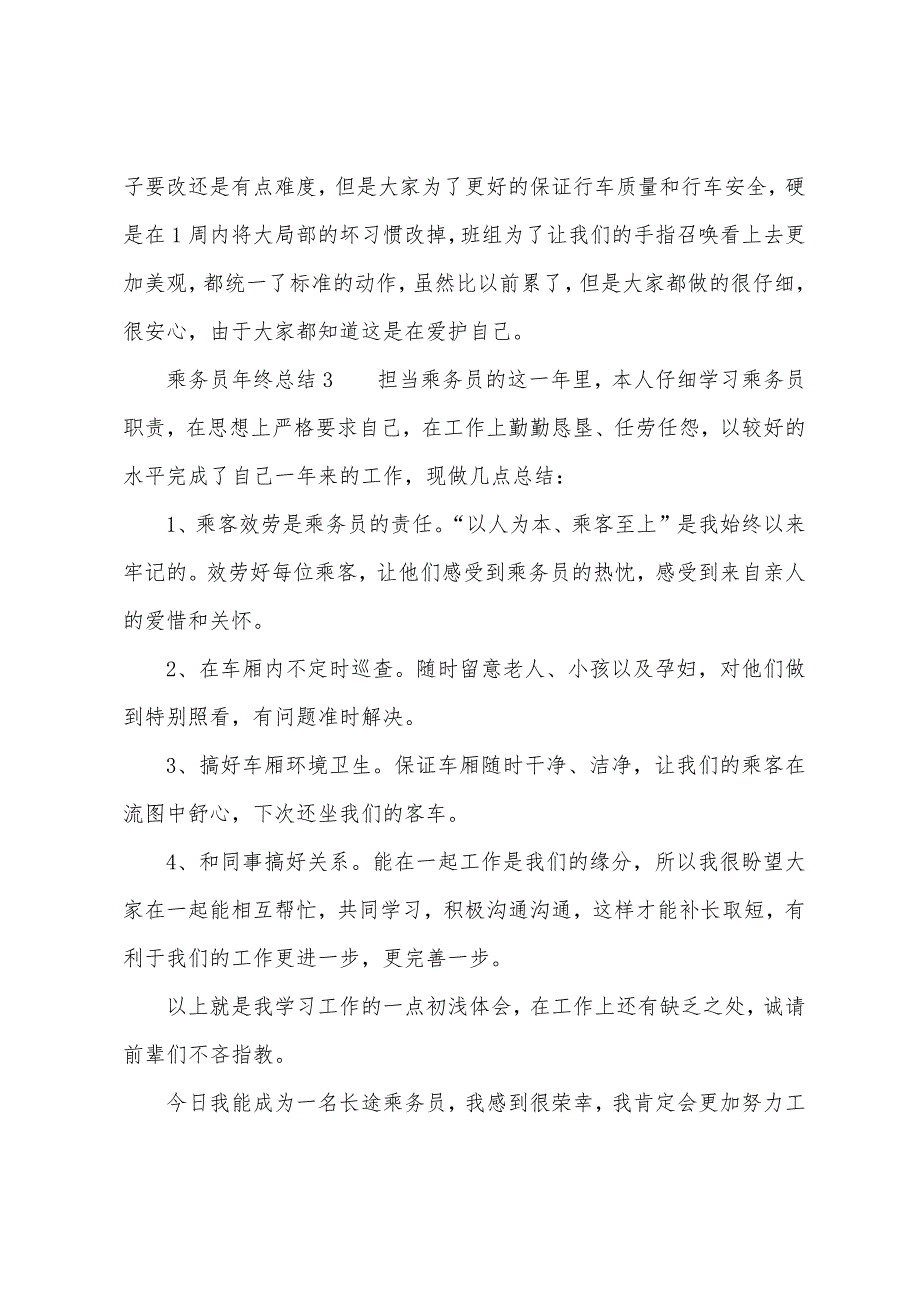 子要改还是有点难度，但是大家为了更好的保证行车质量和行车安全，硬
是在 1 周内将大局部的坏习惯改掉，班组为了让我们的手指召唤看上去更
加美观，都统一了标准的动作，虽然比以前累了，但是大家都做的很仔细，
很安心，由于大家都知道这是在爱护自己。
乘务员年终总结 3　　担当乘务员的这一年里，本人仔细学习乘务员
职责，在思想上严格要求自己，在工作上勤勤恳垦、任劳任怨，以较好的
水平完成了自己一年来的工作，现做几点总结：
1、乘客效劳是乘务员的责任。“以人为本、乘客至上”是我始终以来
牢记的。效劳好每位乘客，让他们感受到乘务员的热忱，感受到来自亲人
的爱惜和关怀。
2、在车厢内不定时巡查。随时留意老人、小孩以及孕妇，对他们做
到特别照看，有问题准时解决。
3、搞好车厢环境卫生。保证车厢随时干净、洁净，让我们的乘客在
流图中舒心，下次还坐我们的客车。
4、和同事搞好关系。能在一起工作是我们的缘分，所以我很盼望大
家在一起能相互帮忙，共同学习，积极沟通沟通，这样才能补长取短，有
利于我们的工作更进一步，更完善一步。
以上就是我学习工作的一点初浅体会，在工作上还有缺乏之处，诚请
前辈们不吝指教。
今日我能成为一名长途乘务员，我感到很荣幸，我肯定会更加努力工